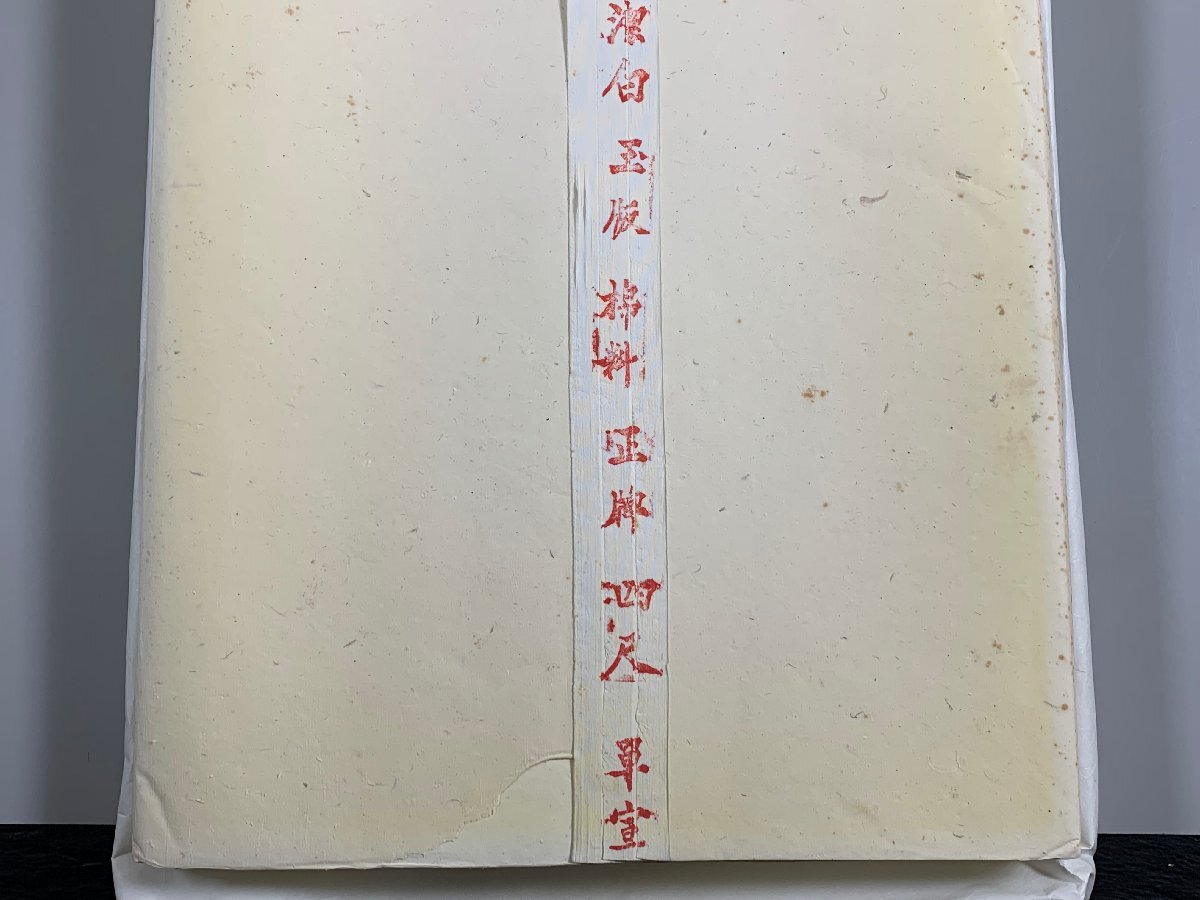 潔白 玉版 棉料 正牌 四尺 單宣